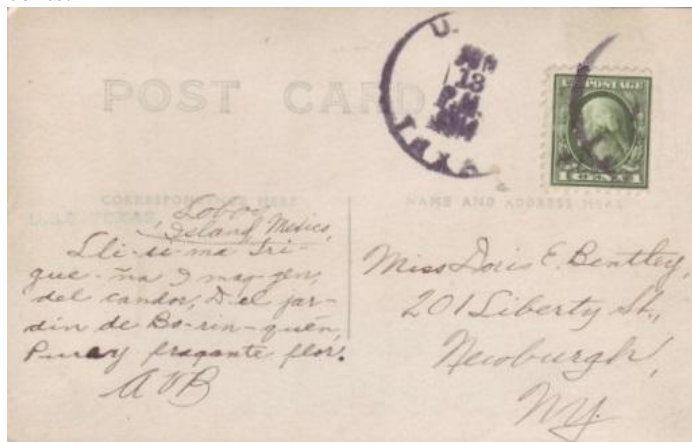 POST CARD
U.
JUN
13
P.M.
TEXAS
U.S. POSTAGE
1 CENT 1
CORRESPONDENCE HERE
NAME AND ADDRESS HERE
U.S.S. TEXAS,
Lobos
Island, Mexico,
Lli-si-ma tri-
gue-ña I mag-gen,
del candor, Del jar-
din de Bo-rin-quén,
Pura y fragante flor.
AVB
Miss Doris E. Bentley,
201 Liberty St.,
Newburgh,
N.Y.